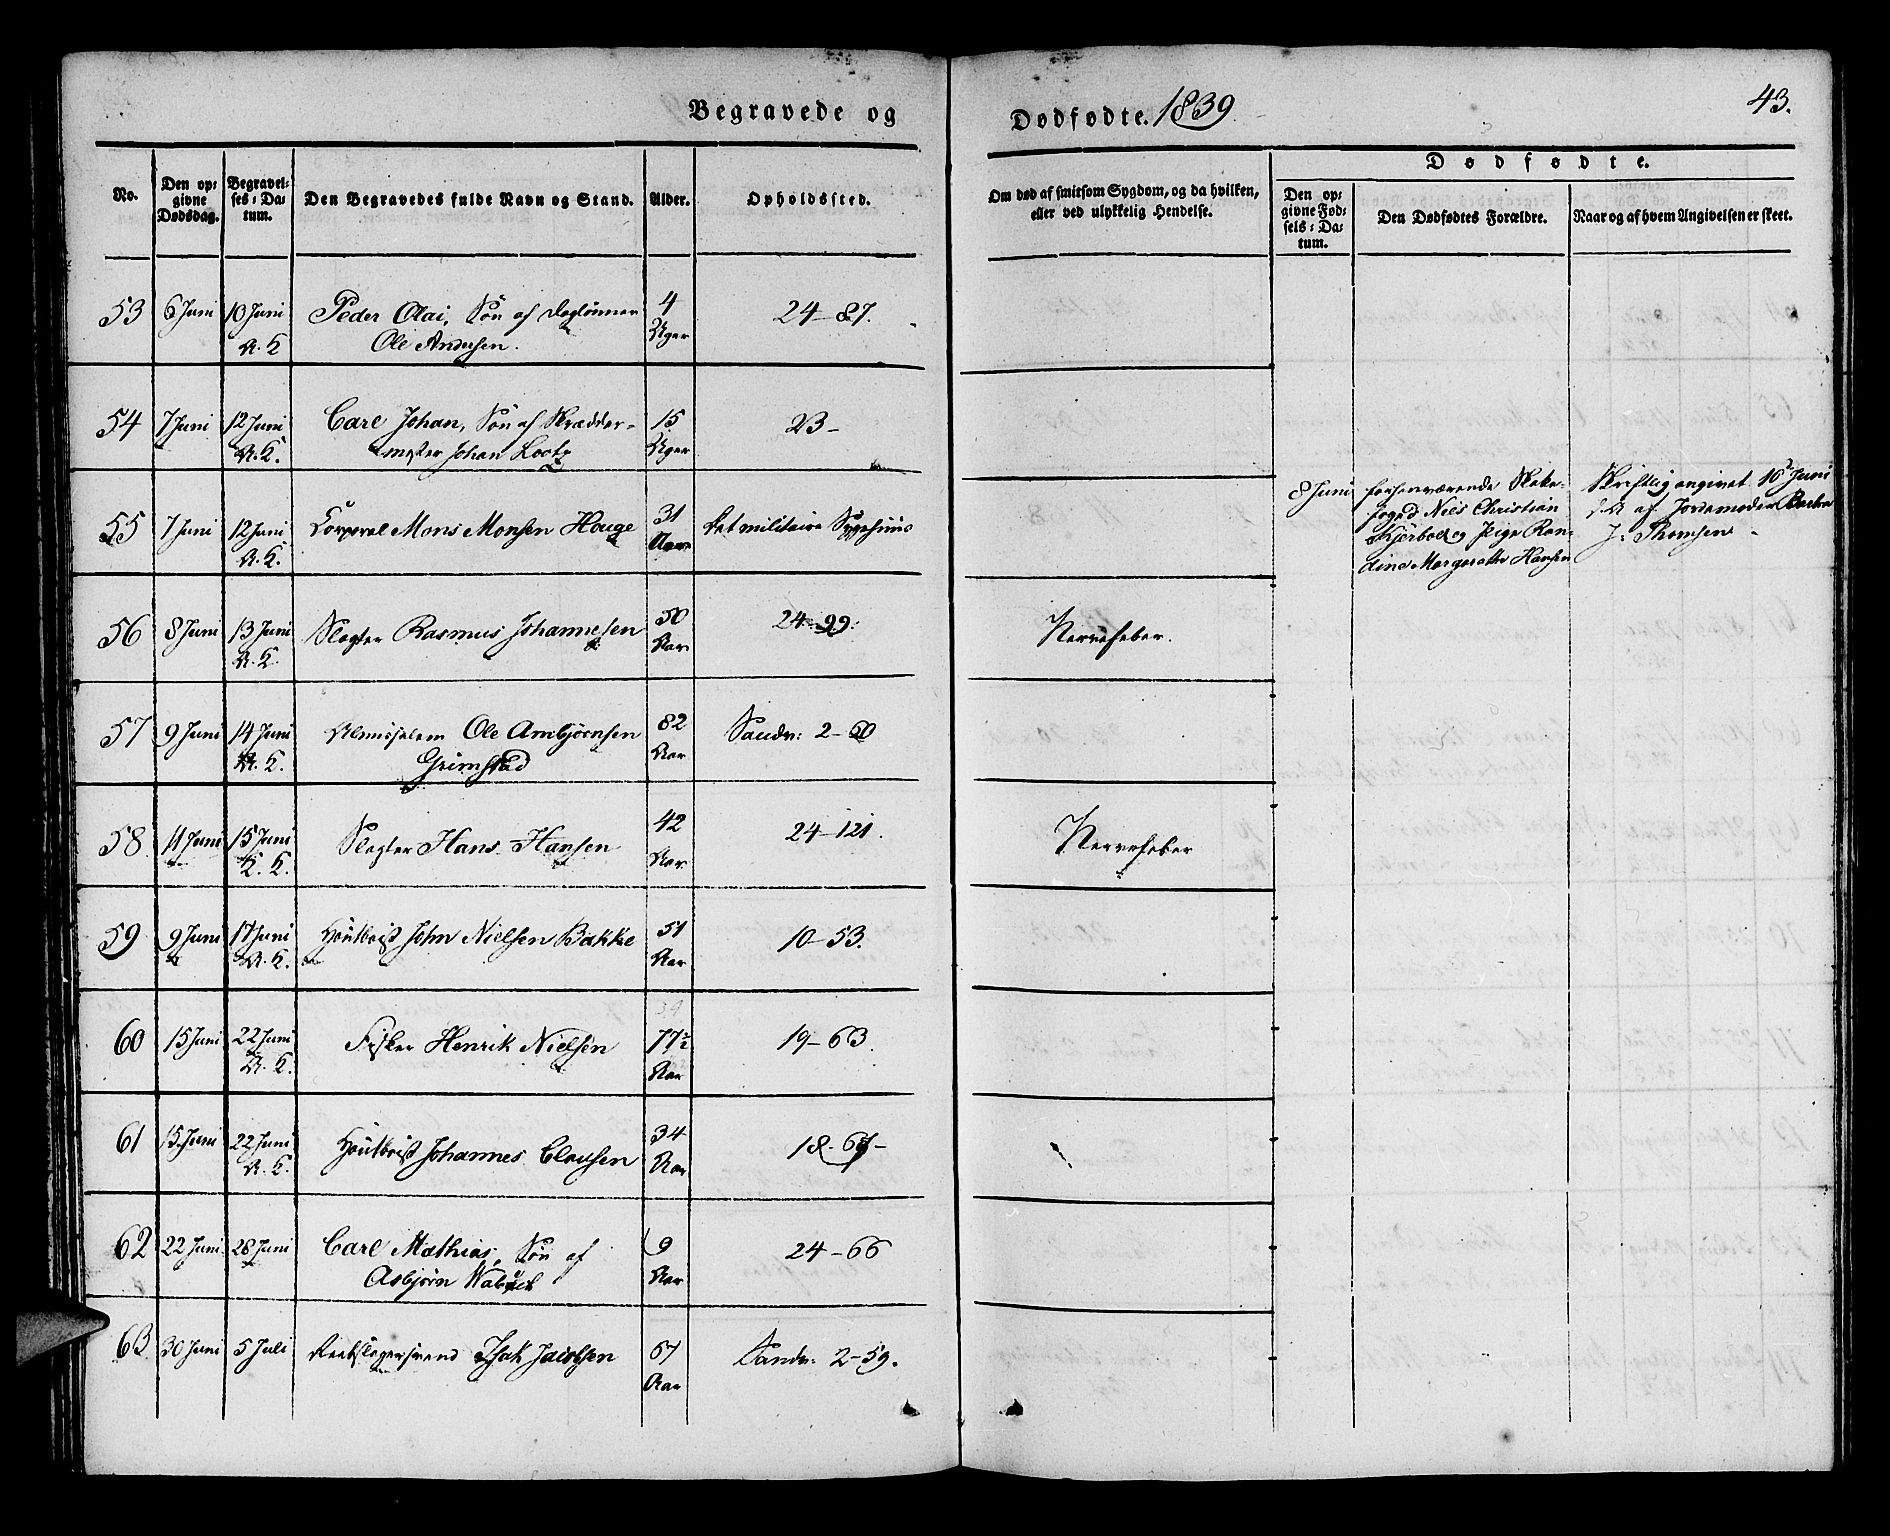 Begravede og Dødfødte. 1839. 43.
No.
Den op-
givne
Dødsdag.
Begravel-
ses-Da-
tum.
Den Begravedes fulde Navn og Stand.
Alder.
Opholdssted.
Om død af smitsom Sygdom, og da hvilken,
eller ved ulykkelig Hendelse.
Dødfødte.
Den op-
givne Fød-
sels-Da-
tum.
Den Dødfødtes Forældre.
Naar og af hvem Angivelsen er skeet.
53 6 Juni 10 Juni Peder Olai, Søn af Daglønner 4 24-87.
A. K. Ole Andersen. Uger
54 7 Juni 12 Juni Carl Johan, Søn af Skrædder- 15 23-
A. K. mester Johan Lootz Uger
55 7 Juni 12 Juni Corporal Mons Monsen Houge 31 Det militaire Sygehuus
A. K. Aar
8 Juni forhenværende
foged Niels Christian
og Pige Ran-
dine Margarethe Hansen
Skriftlig angivet 10 Juni
af Jordemoder
J. Thomsen.
56 8 Juni 13 Juni Slagter Rasmus Johannesen 50 24-99. Nervefeber.
A. K. Aar
57 9 Juni 14 Juni Almisselem Ole Ambjørnsen 82 Sandv: 2-60
A. K. Grimstad Aar
58 11 Juni 15 Juni Slagter Hans Hansen 42 24-121. Nervefeber
K. K. Aar
59 9 Juni 17 Juni John Nielsen Bakke 51 10-53.
A. K. Aar
60 15 Juni 22 Juni Fisker Henrik Nielsen 77½ 19-63.
A. K. Aar
61 15 Juni 22 Juni Johannes Clausen 34 18-67-
A. K. Aar
62 22 Juni 28 Juni Carl Mathias, Søn af 9 24-66
Asbjørn Aar
63 30 Juni 5 Juli Reebslagersvend Isak Jacobsen 67 Sandv: 2-59.
Aar